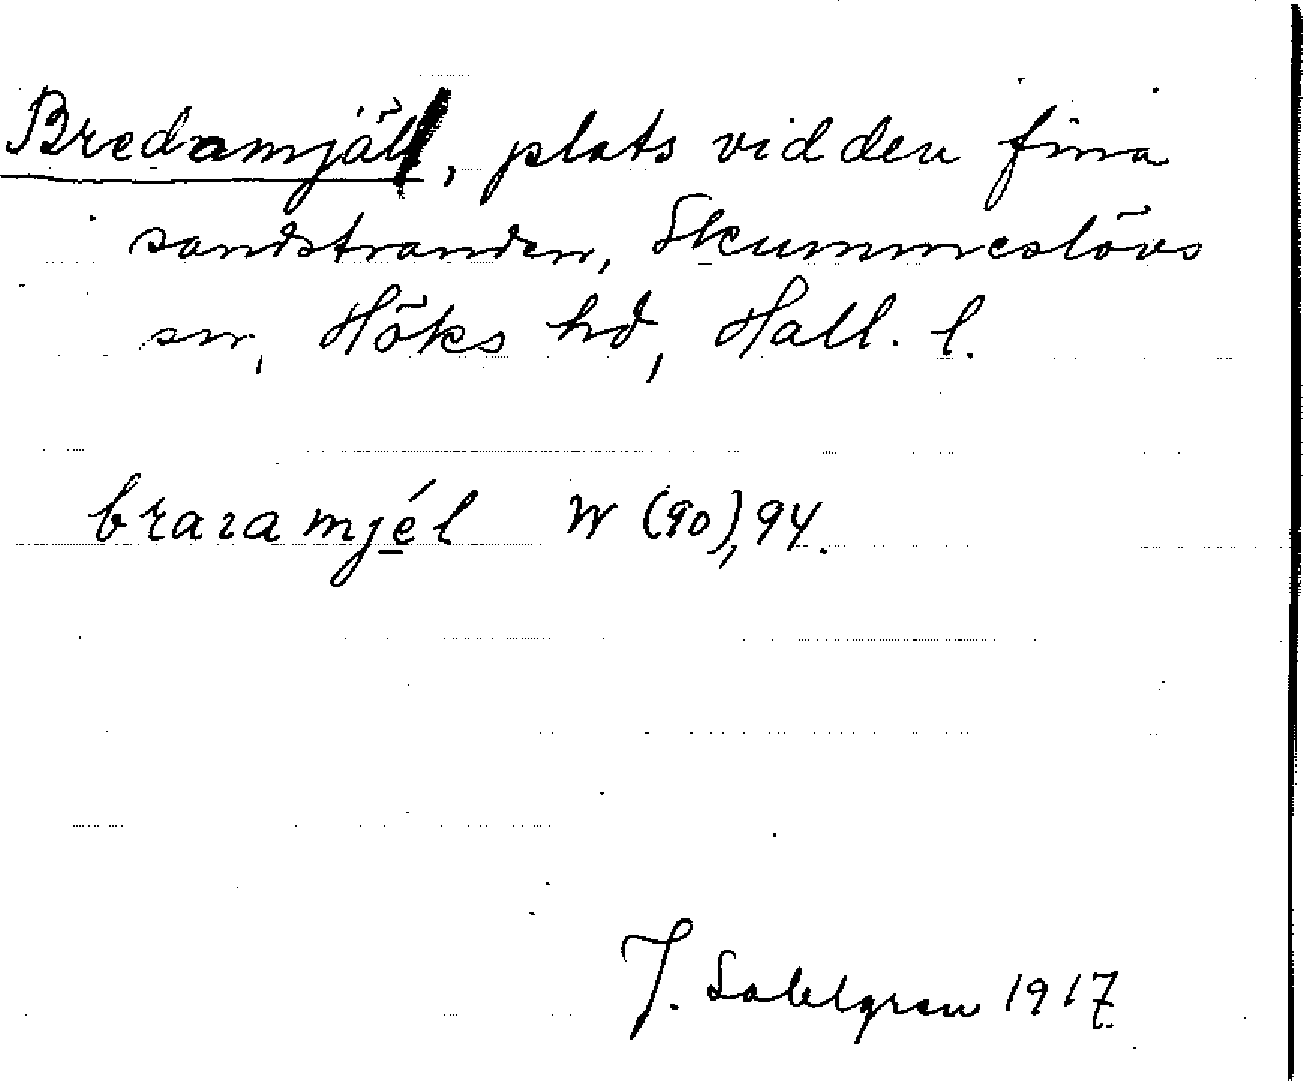 Bredamjäl, plats vid den fina
sandstranden, Skummeslövs
sn, Höks hd, Hall. l.
braramjél W (90), 94.
J. Sahlgren 1917